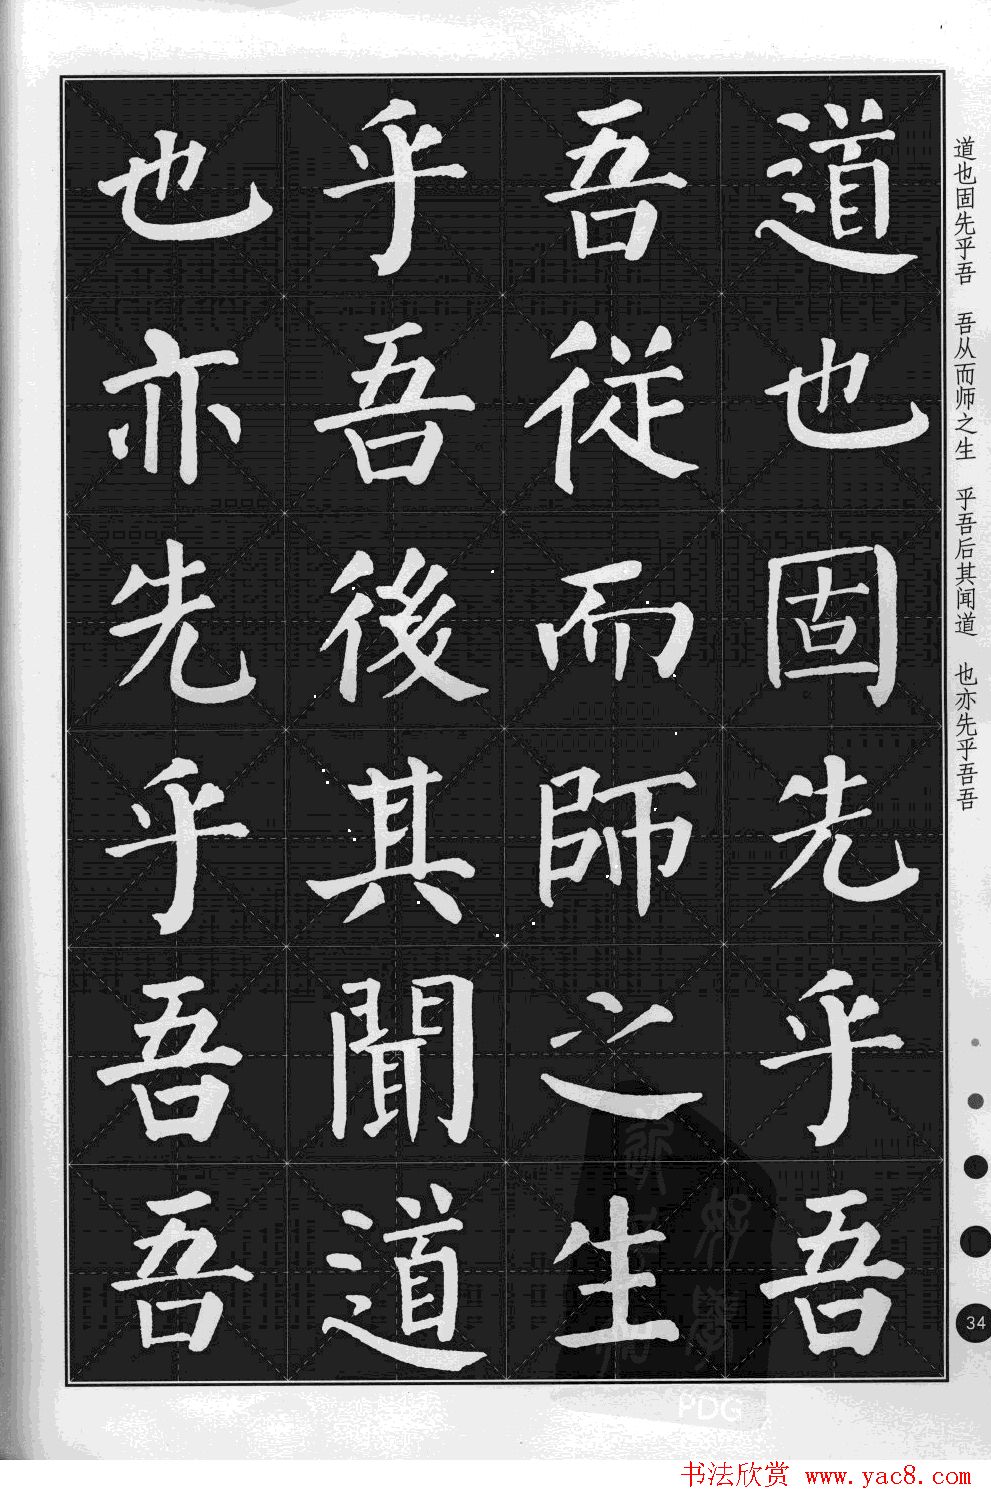 道也固先乎吾
吾從而師之生
乎吾後其聞道
也亦先乎吾吾
道也固先乎吾 吾从而师之生 乎吾后其闻道 也亦先乎吾吾
34
PDG
书法欣赏 www.yac8.com